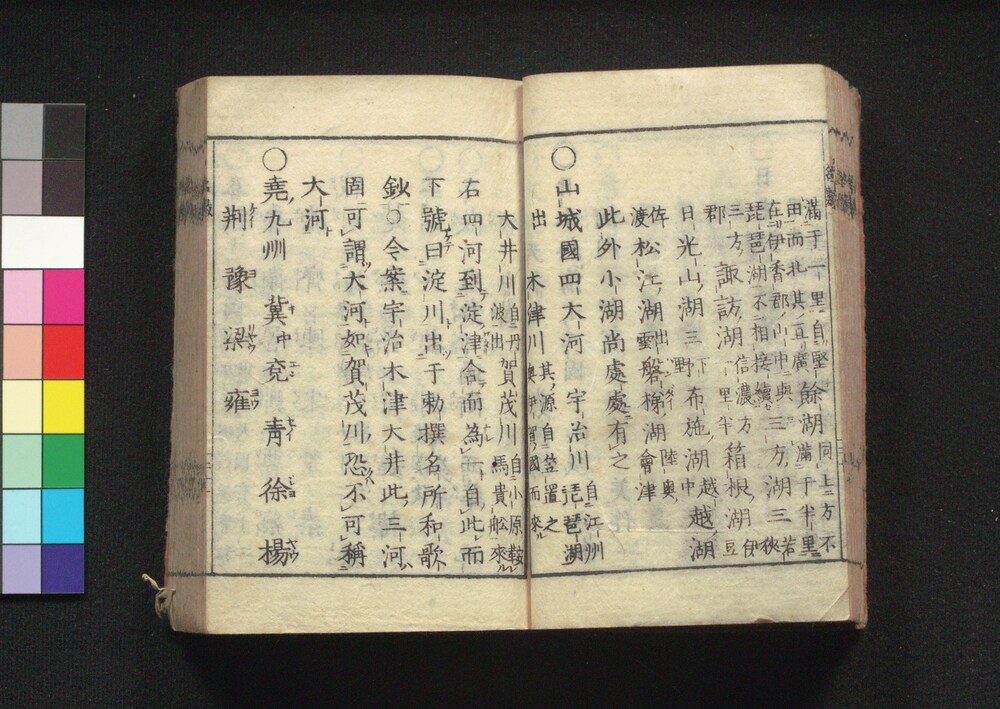 滿于一里自堅
田而北其亘廣
餘湖
同上方不
滿于半里
在伊香郡川中與
琵琶湖不相接續
三方湖
三方
若狹
三方郡
諏訪湖
信濃
方一里半
箱根湖
伊豆
日光山湖
下野
三
布施湖
越中
越湖
渡
松江湖
出雲
磐梯湖
陸奥
會津
此外小湖尚處處有之
○山城國四大河
宇治川
自江州
琵琶湖
出
木津川
其源自笠置之
奥伊賀國而來
大井川
自丹
波出
賀茂川
自小原鞍
馬貴舩來
右四河到淀津合而為一自此而
下號曰淀川出于勅撰名所和歌
鈔○今案宇治木津大井此三河
固可謂大河如賀茂川恐不可稱
大河
○堯九州
冀
中
兗
靑
徐
揚
荆
豫
梁
雍